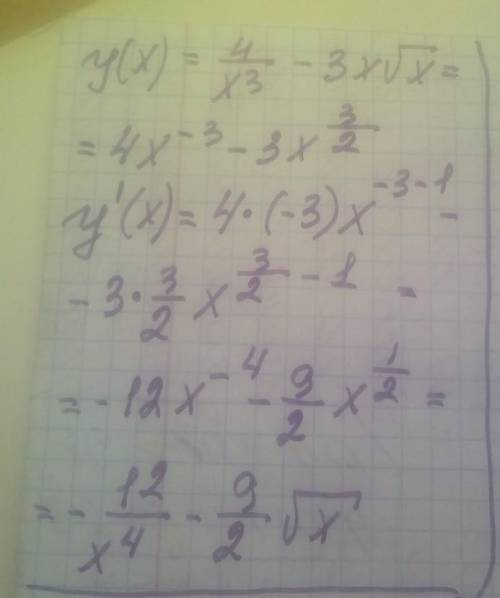 y(x) = 4/x³ - 3x√x =
= 4x⁻³ - 3x^(3/2)
y'(x) = 4·(-3)x^(-3-1) -
- 3·3/2 x^(3/2 - 1) =
= -12x⁻⁴ - 9/2 x^(1/2) =
= - 12/x⁴ - 9/2 √x